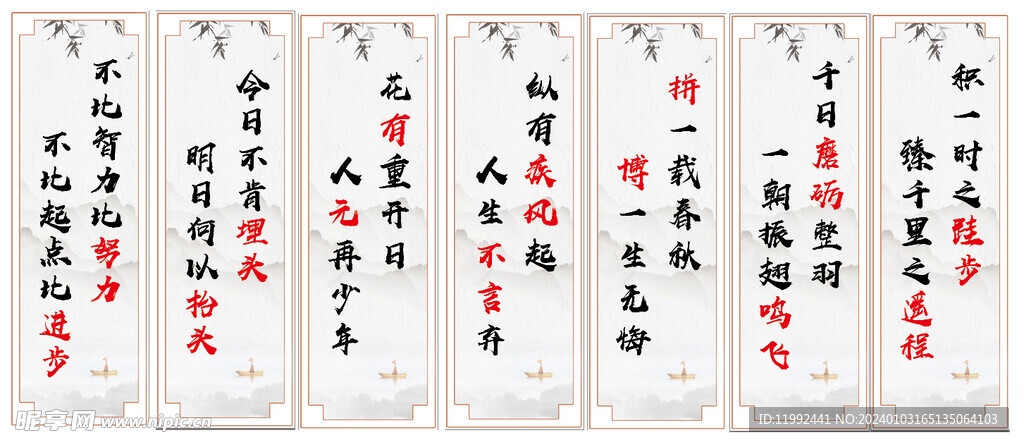 不比智力比努力
不比起点比进步
今日不肯埋头
明日何以抬头
花有重开日
人元再少年
纵有疾风起
人生不言弃
拼一载春秋
博一生无悔
千日磨砺整羽
一朝振翅鸣飞
积一时之跬步
臻千里之遥程
昵享网 www.nipic.cn
ID:11992441 NO:20240103165135064103